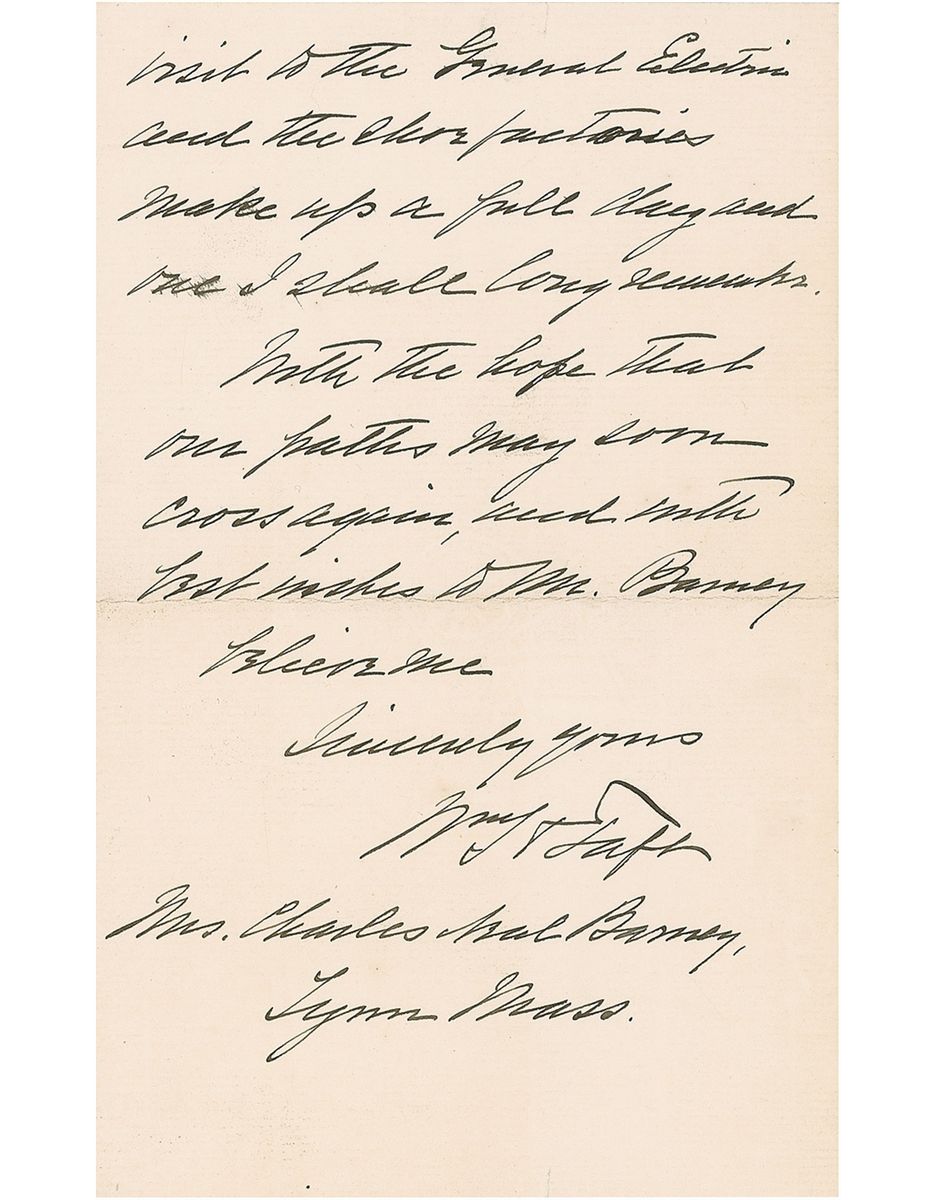 visit to the General Electric
and the shoe factories
make up a full day and
one I shall long remember.
With the hope that
our paths may soon
cross again, and with
best wishes to Mr. Barney
believe me
Sincerely yours
Wm H Taft
Mrs. Charles Neal Barney,
Lynn Mass.